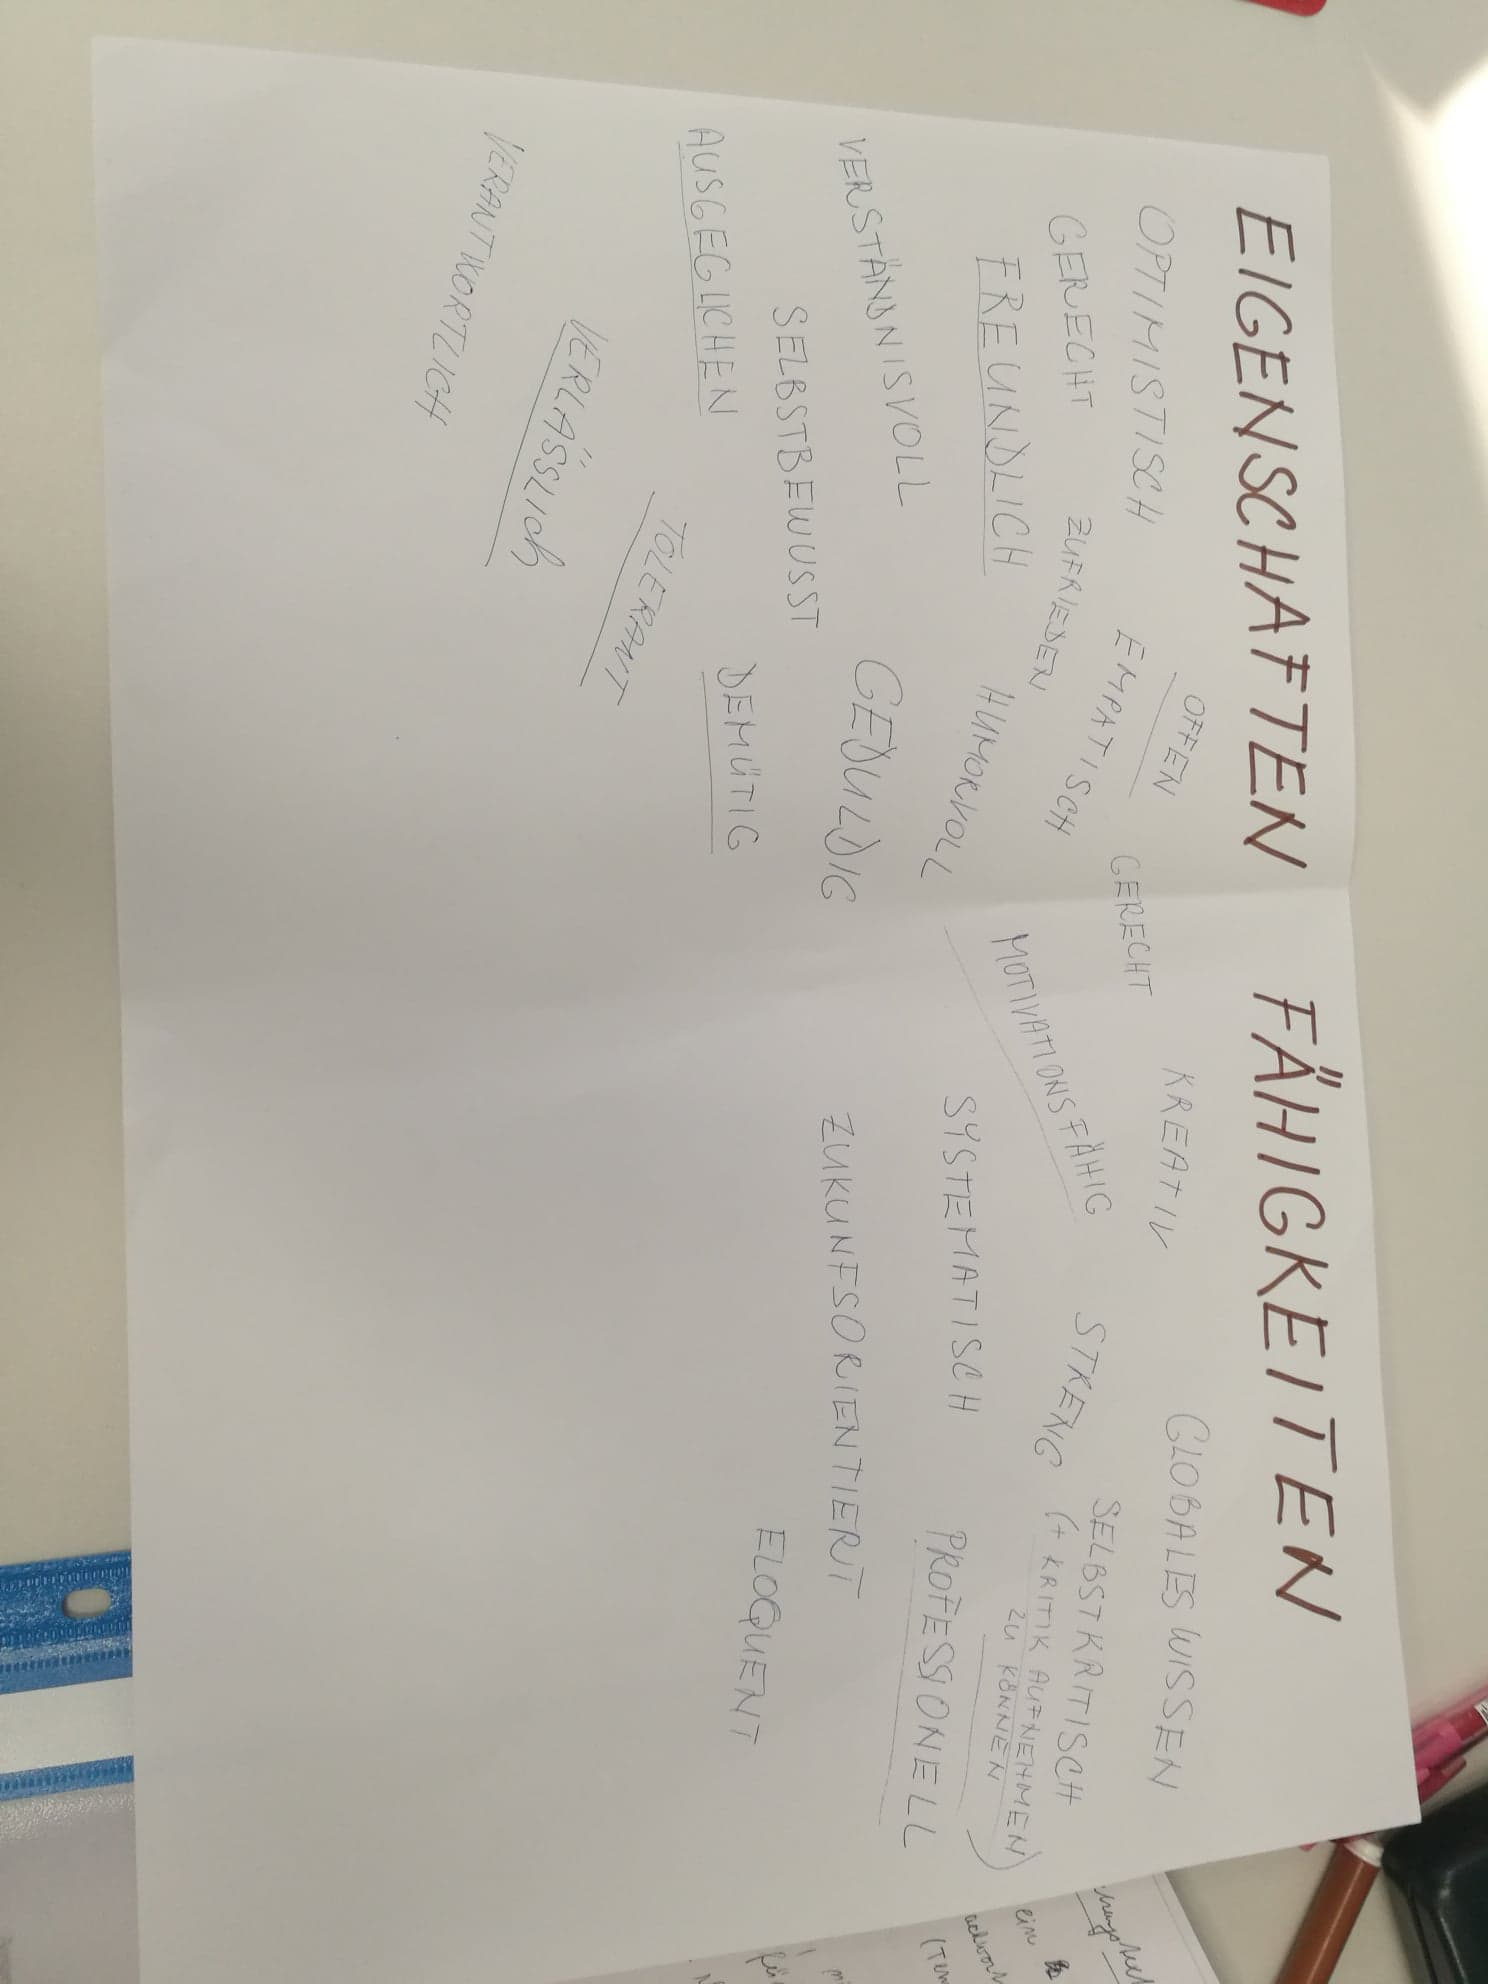 EIGENSCHAFTEN FÄHIGKEITEN
OPTIMISTISCH
OFFEN
GERECHT
ZUFRIEDEN
EMPATISCH
FREUNDLICH
HUMORVOLL
VERSTÄNDNISVOLL
SELBSTBEWUSST
GEDULDIG
AUSGEGLICHEN
DEMÜTIG
TOLERANT
VERLÄSSLICH
VERANTWORTLICH
GERECHT
KREATIV
GLOBALES WISSEN
MOTIVATIONSFÄHIG
STRENG
SELBSTKRITISCH
(+ KRITIK AUFNEHMEN
ZU KÖNNEN)
SYSTEMATISCH
PROFESSIONELL
ZUKUNFSORIENTIERT
ELOQUENT
ein
(Tem